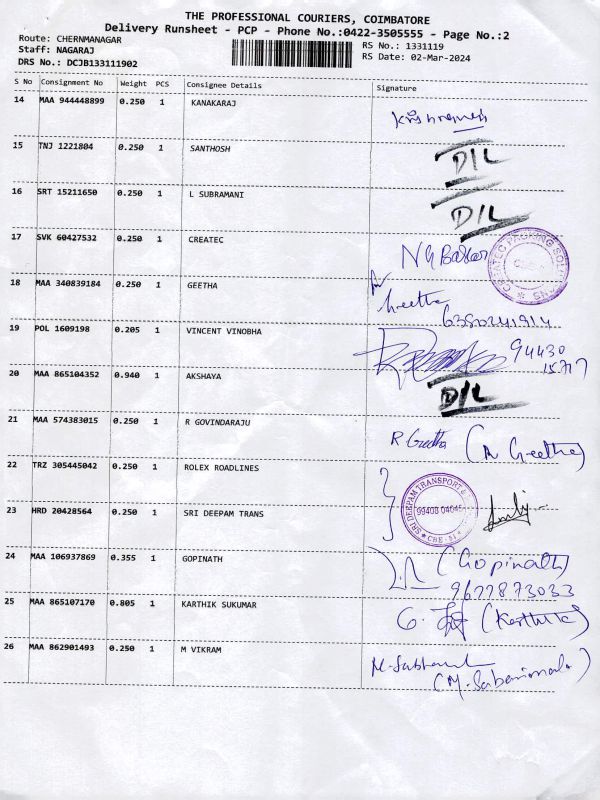 THE PROFESSIONAL COURIERS, COIMBATORE
Delivery Runsheet - PCP - Phone No.:0422-3505555 - Page No.:2
Route: CHERNMANAGAR
RS No.: 1331119
Staff: NAGARAJ
RS Date: 02-Mar-2024
DRS No.: DCJB133111902
S No Consignment No Weight PCS Consignee Details Signature
14 MAA 944448899 0.250 1 KANAKARAJ
15 TNJ 1221804 0.250 1 SANTHOSH D/L
16 SRT 15211650 0.250 1 L SUBRAMANI D/L
17 SVK 60427532 0.250 1 CREATEC
CREATEC PACKING
18 MAA 340839184 0.250 1 GEETHA Geetha
6380241914
19 POL 1609198 0.205 1 VINCENT VINOBHA 94430
15717
20 MAA 865104352 0.940 1 AKSHAYA D/L
21 MAA 574383015 0.250 1 R GOVINDARAJU R Geetha (R Geetha)
22 TRZ 305445042 0.250 1 ROLEX ROADLINES
SRI DEEPAM TRANSPORT
23 HRD 20428564 0.250 1 SRI DEEPAM TRANS
24 MAA 106937869 0.355 1 GOPINATH (Gopinath)
9677873033
25 MAA 865107170 0.805 1 KARTHIK SUKUMAR (Karthik)
26 MAA 862901493 0.250 1 M VIKRAM